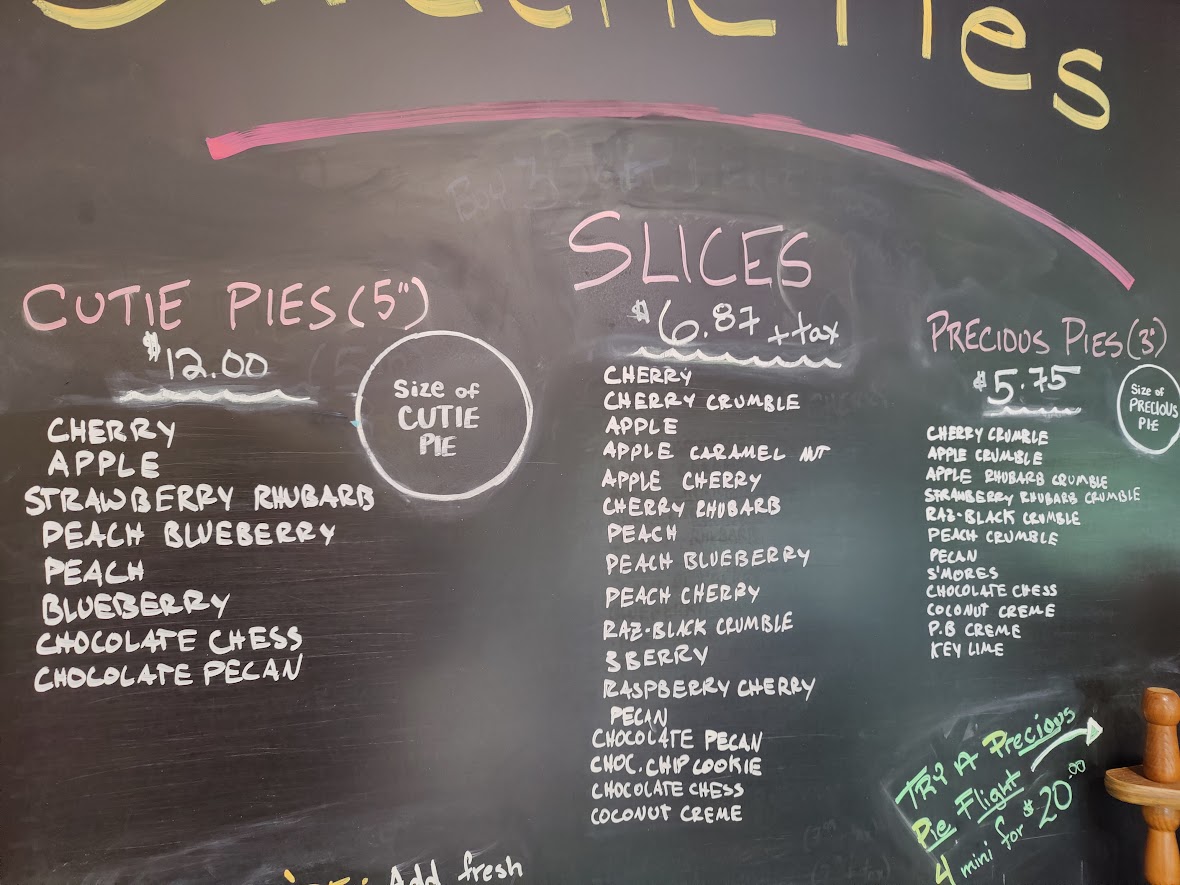 Pies
CUTIE PIES (5")
$12.00
Size of
CUTIE
PIE
CHERRY
APPLE
STRAWBERRY RHUBARB
PEACH BLUEBERRY
PEACH
BLUEBERRY
CHOCOLATE CHESS
CHOCOLATE PECAN
SLICES
$6.87 + tax
CHERRY
CHERRY CRUMBLE
APPLE
APPLE CARAMEL NUT
APPLE CHERRY
CHERRY RHUBARB
PEACH
PEACH BLUEBERRY
PEACH CHERRY
RAZ-BLACK CRUMBLE
3 BERRY
RASPBERRY CHERRY
PECAN
CHOCOLATE PECAN
CHOC. CHIP COOKIE
CHOCOLATE CHESS
COCONUT CREME
PRECIOUS PIES (3")
$5.75
Size of
PRECIOUS
PIE
CHERRY CRUMBLE
APPLE CRUMBLE
APPLE RHUBARB CRUMBLE
STRAWBERRY RHUBARB CRUMBLE
RAZ-BLACK CRUMBLE
PEACH CRUMBLE
PECAN
S'MORES
CHOCOLATE CHESS
COCONUT CREME
P.B CREME
KEY LIME
TRY A Precious
Pie Flight
4 mini for $20.00
Add fresh